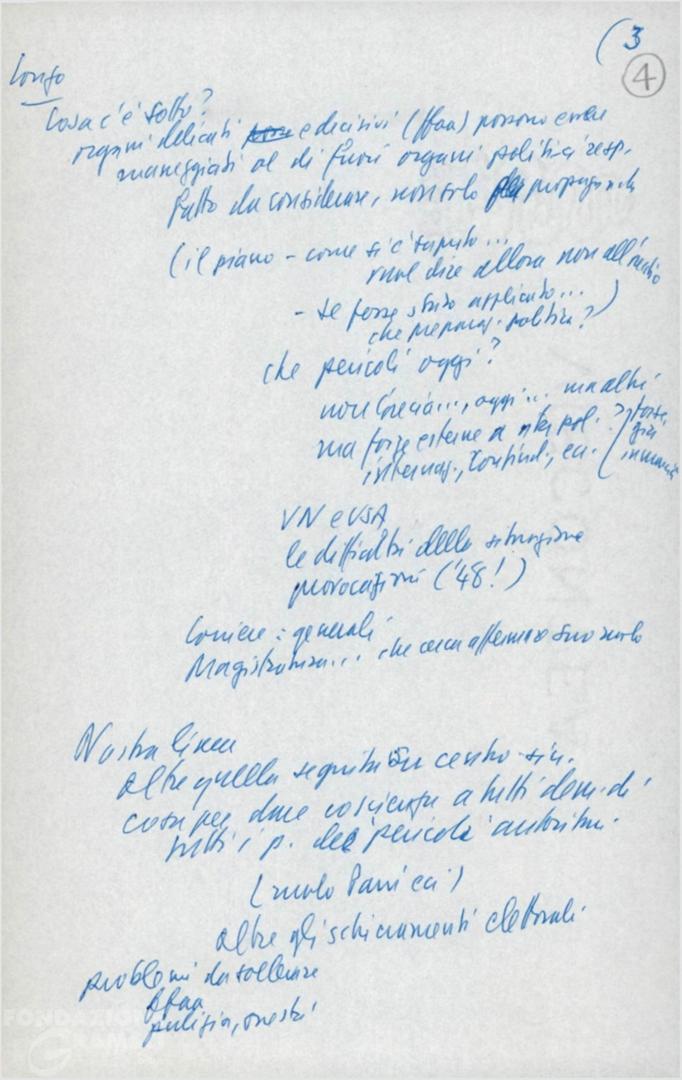 (3
4
Longo
Cosa c'è sotto?
organi delicati e decisivi (ffaa) possono essere
maneggiati al di fuori organi politici resp.
fatto da considerare, non solo propaganda
(il piano - come si è saputo...
vuol dire allora non all'
- se fosse stato applicato...
che preparaz. politica?)
che pericoli oggi?
non Grecia..., oggi... ma altri
ma forze esterne a pol. ?
internaz., Confind., ecc. (forse già in marcia
VN e USA
le difficoltà della situazione
provocazioni ('48!)
Corriere: generali
Magistratura... che cerca affermare suo ruolo
Nostra linea
oltre quella seguita su centro-sin.
cosa per dare coscienza a tutti dem. di
tutti i p. dei pericoli autorita.
(ruolo Parri ecc)
oltre gli schieramenti elettorali
problemi da sollevare
ffaa
polizia, onestà
FONDAZIONE
GRAMSCI